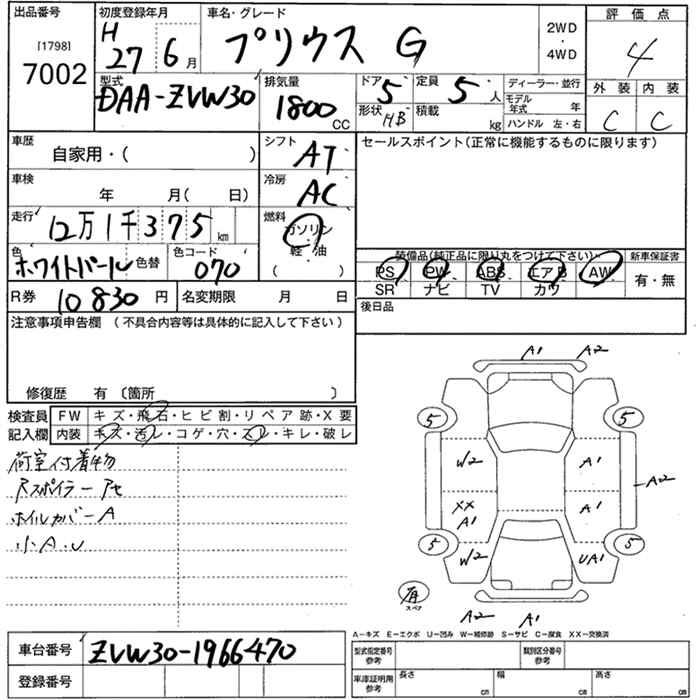 出品番号 初度登録年月 車名・グレード 評価点
[1798]
7002
H 27 6月 プリウス G 2WD・4WD 4
型式 排気量 ドア 定員 ディーラー・並行 外装 内装
DAA-ZVW30 1800CC 5 5人 モデル年式 年
形状 HB 積載 kg ハンドル 左・右 C C
車歴 シフト セールスポイント(正常に機能するものに限ります)
自家用・( ) AT
車検 冷房
年 月( 日) AC
走行 燃料
12万1千375km ガソリン
色 色替 色コード 軽・油
ホワイトパール 070 ( )
装備品(純正品に限り丸をつけて下さい) 新車保証書
PS PW ABS エアB AW 有・無
SR ナビ TV カワ
R券 10830円 名変期限 月 日 後日品
注意事項申告欄 (不具合内容等は具体的に記入して下さい)
修復歴 有 〔箇所 〕
検査員 FW キズ・飛石・ヒビ割・リペア跡・X要
記入欄 内装 キズ・汚レ・コゲ・穴・スレ・キレ・破レ
荷室付着物
Rスポイラー
ホイルカバーA
小A.U
A1 A2
5 5
W2 A1
A2
XX A1 A1
5 5
W2 UA1
有 スペア
A2 A1
A-キズ E-エクボ U-凹み W-補修跡 S-サビ C-腐食 XX-交換済
車台番号 ZVW30-1966470
型式指定番号 参考 類別区分番号 参考
登録番号
車庫証明用 参考 長さ cm 幅 cm 高さ cm